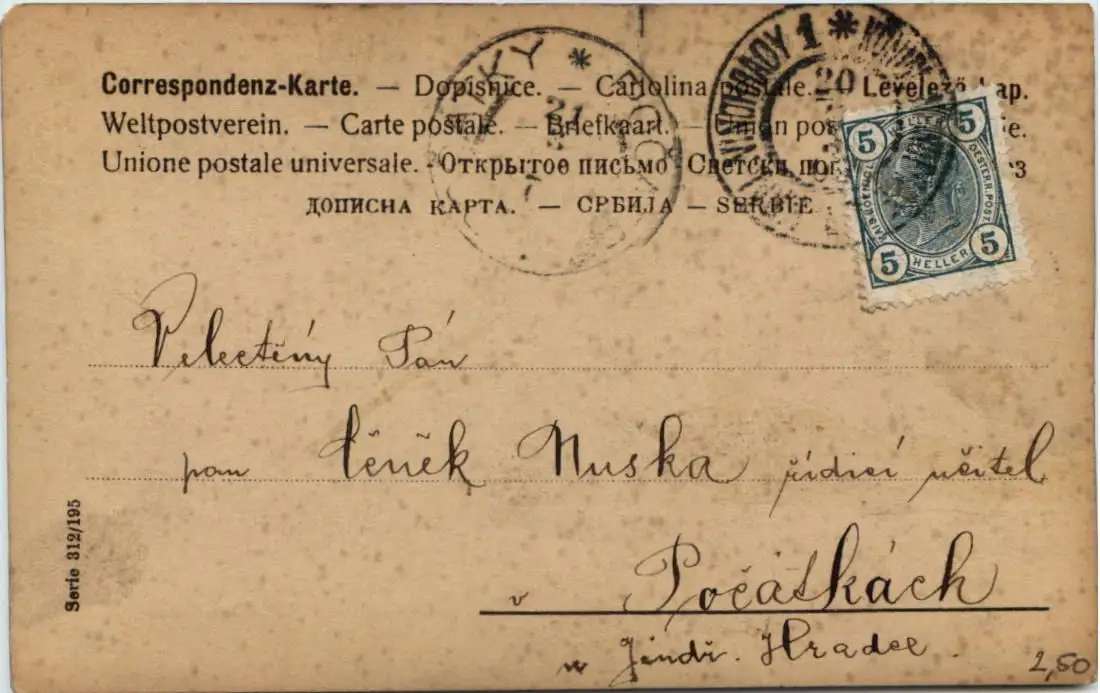 Correspondenz-Karte. — Dopisnice. — Cartolina postale. — Levelező
Weltpostverein. — Carte postale. — Briefkaart. — Union
Unione postale universale. - Открытое письмо Светски
ДОПИСНА КАРТА. — СРБИЈА — SERBIE
VINOHRADY 1
20
21
5 HELLER 5
5 HELLER 5
OESTERR.POST
Velectěný Pán
pan Čeněk Muska řídící učitel
v Počátkách
u Jindř. Hradce.
Serie 312/195
2,50